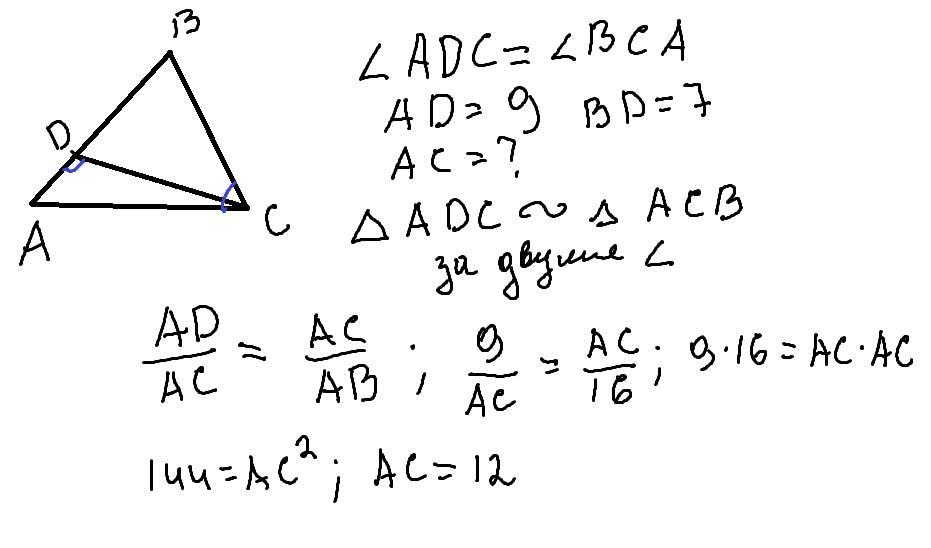 B
D
A
C
∠ADC = ∠BCA
AD = 9 BD = 7
AC = ?
△ADC ~ △ACB
за двумя ∠
AD/AC = AC/AB ; 9/AC = AC/16 ; 9·16 = AC·AC
144 = AC² ; AC = 12